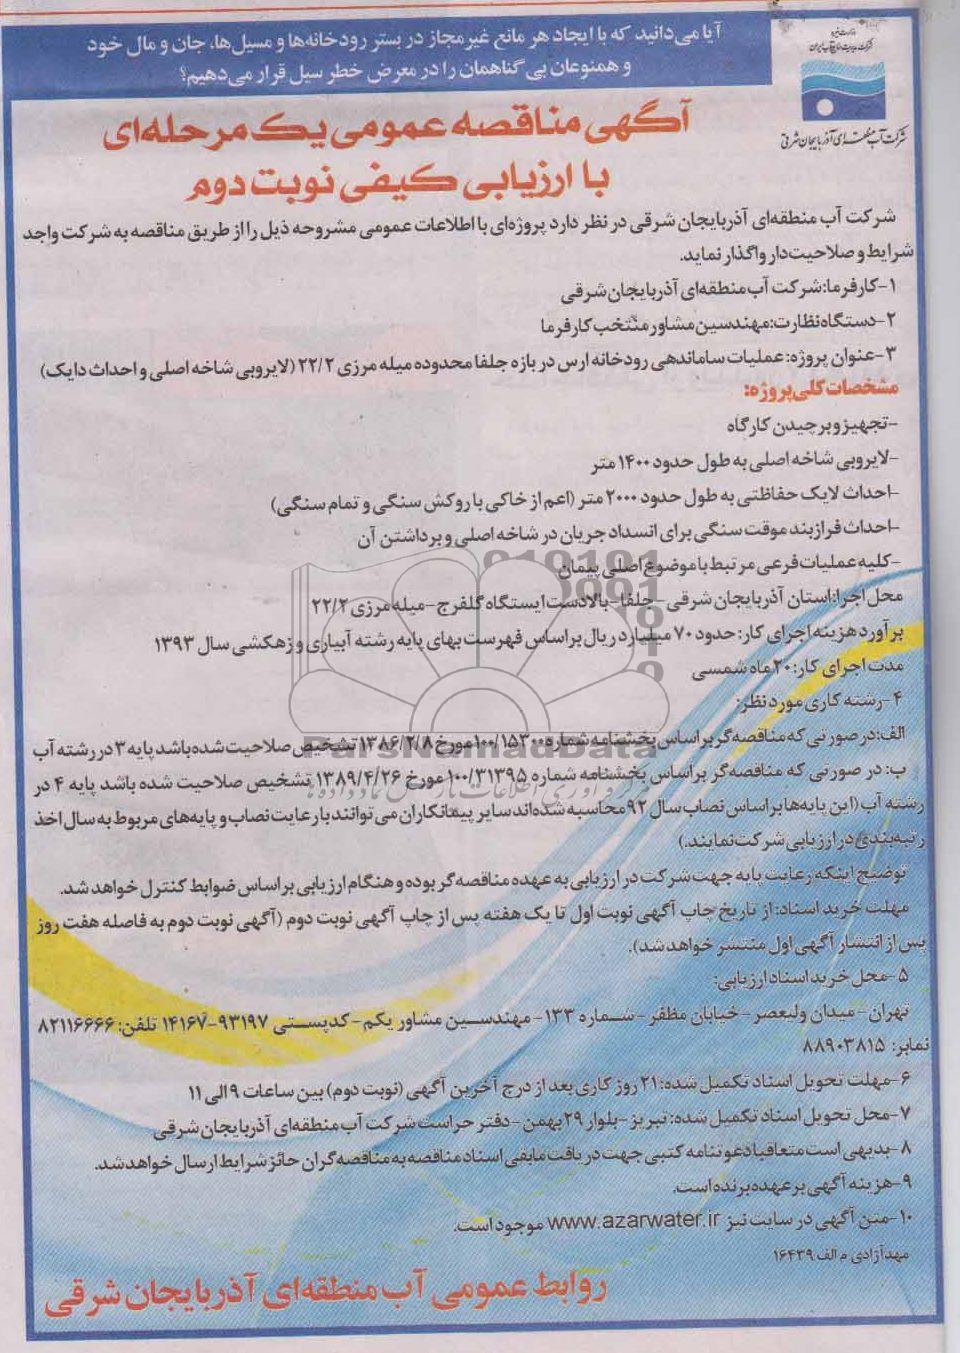 آیا می‌دانید که با ایجاد هر مانع غیرمجاز در بستر رودخانه‌ها و مسیل‌ها، جان و مال خود
و همنوعان بی گناهمان را در معرض خطر سیل قرار می‌دهیم؟
وزارت نیرو
شرکت مدیریت منابع آب ایران
شرکت آب منطقه‌ای آذربایجان شرقی
آگهی مناقصه عمومی یک مرحله‌ای
با ارزیابی کیفی نوبت دوم
شرکت آب منطقه‌ای آذربایجان شرقی در نظر دارد پروژه‌ای با اطلاعات عمومی مشروحه ذیل را از طریق مناقصه به شرکت واجد
شرایط و صلاحیت‌دار واگذار نماید.
۱-کارفرما: شرکت آب منطقه‌ای آذربایجان شرقی
۲-دستگاه نظارت: مهندسین مشاور منتخب کارفرما
۳-عنوان پروژه: عملیات ساماندهی رودخانه ارس در بازه جلفا محدوده میله مرزی ۲۲/۲ (لایروبی شاخه اصلی و احداث دایک)
مشخصات کلی پروژه:
-تجهیز و برچیدن کارگاه
-لایروبی شاخه اصلی به طول حدود ۱۴۰۰ متر
-احداث لایک حفاظتی به طول حدود ۲۰۰۰ متر (اعم از خاکی با روکش سنگی و تمام سنگی)
-احداث فرازبند موقت سنگی برای انسداد جریان در شاخه اصلی و برداشتن آن
-کلیه عملیات فرعی مرتبط با موضوع اصلی پیمان
محل اجرا: استان آذربایجان شرقی -جلفا-بالادست ایستگاه گلفرج-میله مرزی ۲۲/۲
برآورد هزینه اجرای کار: حدود ۷۰ میلیارد ریال براساس فهرست بهای پایه رشته آبیاری و زهکشی سال ۱۳۹۳
مدت اجرای کار: ۲۰ ماه شمسی
۴-رشته کاری مورد نظر:
الف: در صورتی که مناقصه‌گر بر اساس بخشنامه شماره ۱۰۰/۱۵۳۰۰ مورخ ۱۳۸۶/۲/۸ تشخیص صلاحیت شده باشد پایه ۳ در رشته آب
ب: در صورتی که مناقصه‌گر بر اساس بخشنامه شماره ۱۰۰/۳۱۳۹۵ مورخ ۱۳۸۹/۴/۲۶ تشخیص صلاحیت شده باشد پایه ۴ در
رشته آب (این پایه‌ها بر اساس نصاب سال ۹۲ محاسبه شده‌اند سایر پیمانکاران می‌توانند با رعایت نصاب و پایه‌های مربوط به سال اخذ
رتبه‌بندی در ارزیابی شرکت نمایند.)
توضیح اینکه رعایت پایه جهت شرکت در ارزیابی به عهده مناقصه‌گر بوده و هنگام ارزیابی بر اساس ضوابط کنترل خواهد شد.
مهلت خرید اسناد: از تاریخ چاپ آگهی نوبت اول تا یک هفته پس از چاپ آگهی نوبت دوم (آگهی نوبت دوم به فاصله هفت روز
پس از انتشار آگهی اول منتشر خواهد شد).
۵-محل خرید اسناد ارزیابی:
تهران-میدان ولیعصر-خیابان مظفر-شماره ۱۳۳-مهندسین مشاور یکم-کدپستی ۹۳۱۹۷-۱۴۱۶۷ تلفن: ۸۲۱۱۶۶۶۶
نمابر: ۸۸۹۰۳۸۱۵
۶-مهلت تحویل اسناد تکمیل شده: ۲۱ روز کاری بعد از درج آخرین آگهی (نوبت دوم) بین ساعات ۹ الی ۱۱
۷-محل تحویل اسناد تکمیل شده: تبریز-بلوار ۲۹ بهمن-دفتر حراست شرکت آب منطقه‌ای آذربایجان شرقی
۸-بدیهی است متعاقبا دعوتنامه کتبی جهت دریافت مابقی اسناد مناقصه به مناقصه‌گران حائز شرایط ارسال خواهد شد.
۹-هزینه آگهی بر عهده برنده است.
۱۰-متن آگهی در سایت نیز www.azarwater.ir موجود است.
مهدآزادی م الف ۱۶۴۳۹
روابط عمومی آب منطقه‌ای آذربایجان شرقی
ParsNamadData